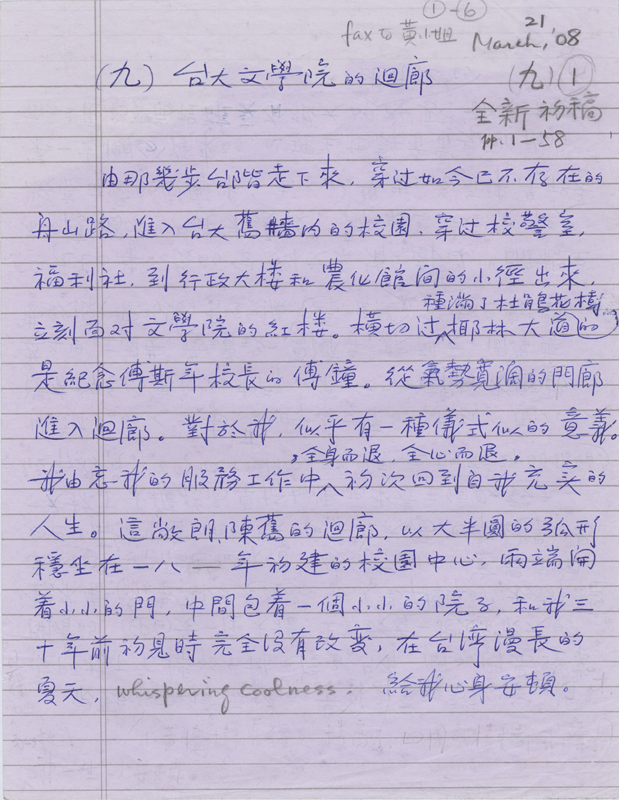 ①-⑥
fax to 黃小姐 March, 21 '08
(九) 台大文學院的迴廊
(九) ①
全新初稿
pp. 1-58
由那幾步台階走下來，穿过如今已不存在的
舟山路，進入台大舊牆内的校園，穿过校警室，
福利社，到行政大楼和農化館間的小徑出來，
種滿了杜鵑花樹
立刻面对文學院的紅楼。橫切过椰林大道的
是紀念傅斯年校長的傅鐘。從氣勢寬濶的門廊
進入迴廊。對於我，似乎有一種儀式似的意義。
，全身而退，全心而退，
我由忘我的服務工作中初次回到自我充实的
人生。這敞朗，陳舊的迴廊，以大半圓的弧形
穩坐在一八 — 年初建的校園中心，兩端開
着小小的門，中間包着一個小小的院子，和我三
十年前初見時完全沒有改変，在台湾漫長的
夏天，whispering coolness. 給我心身安頓。